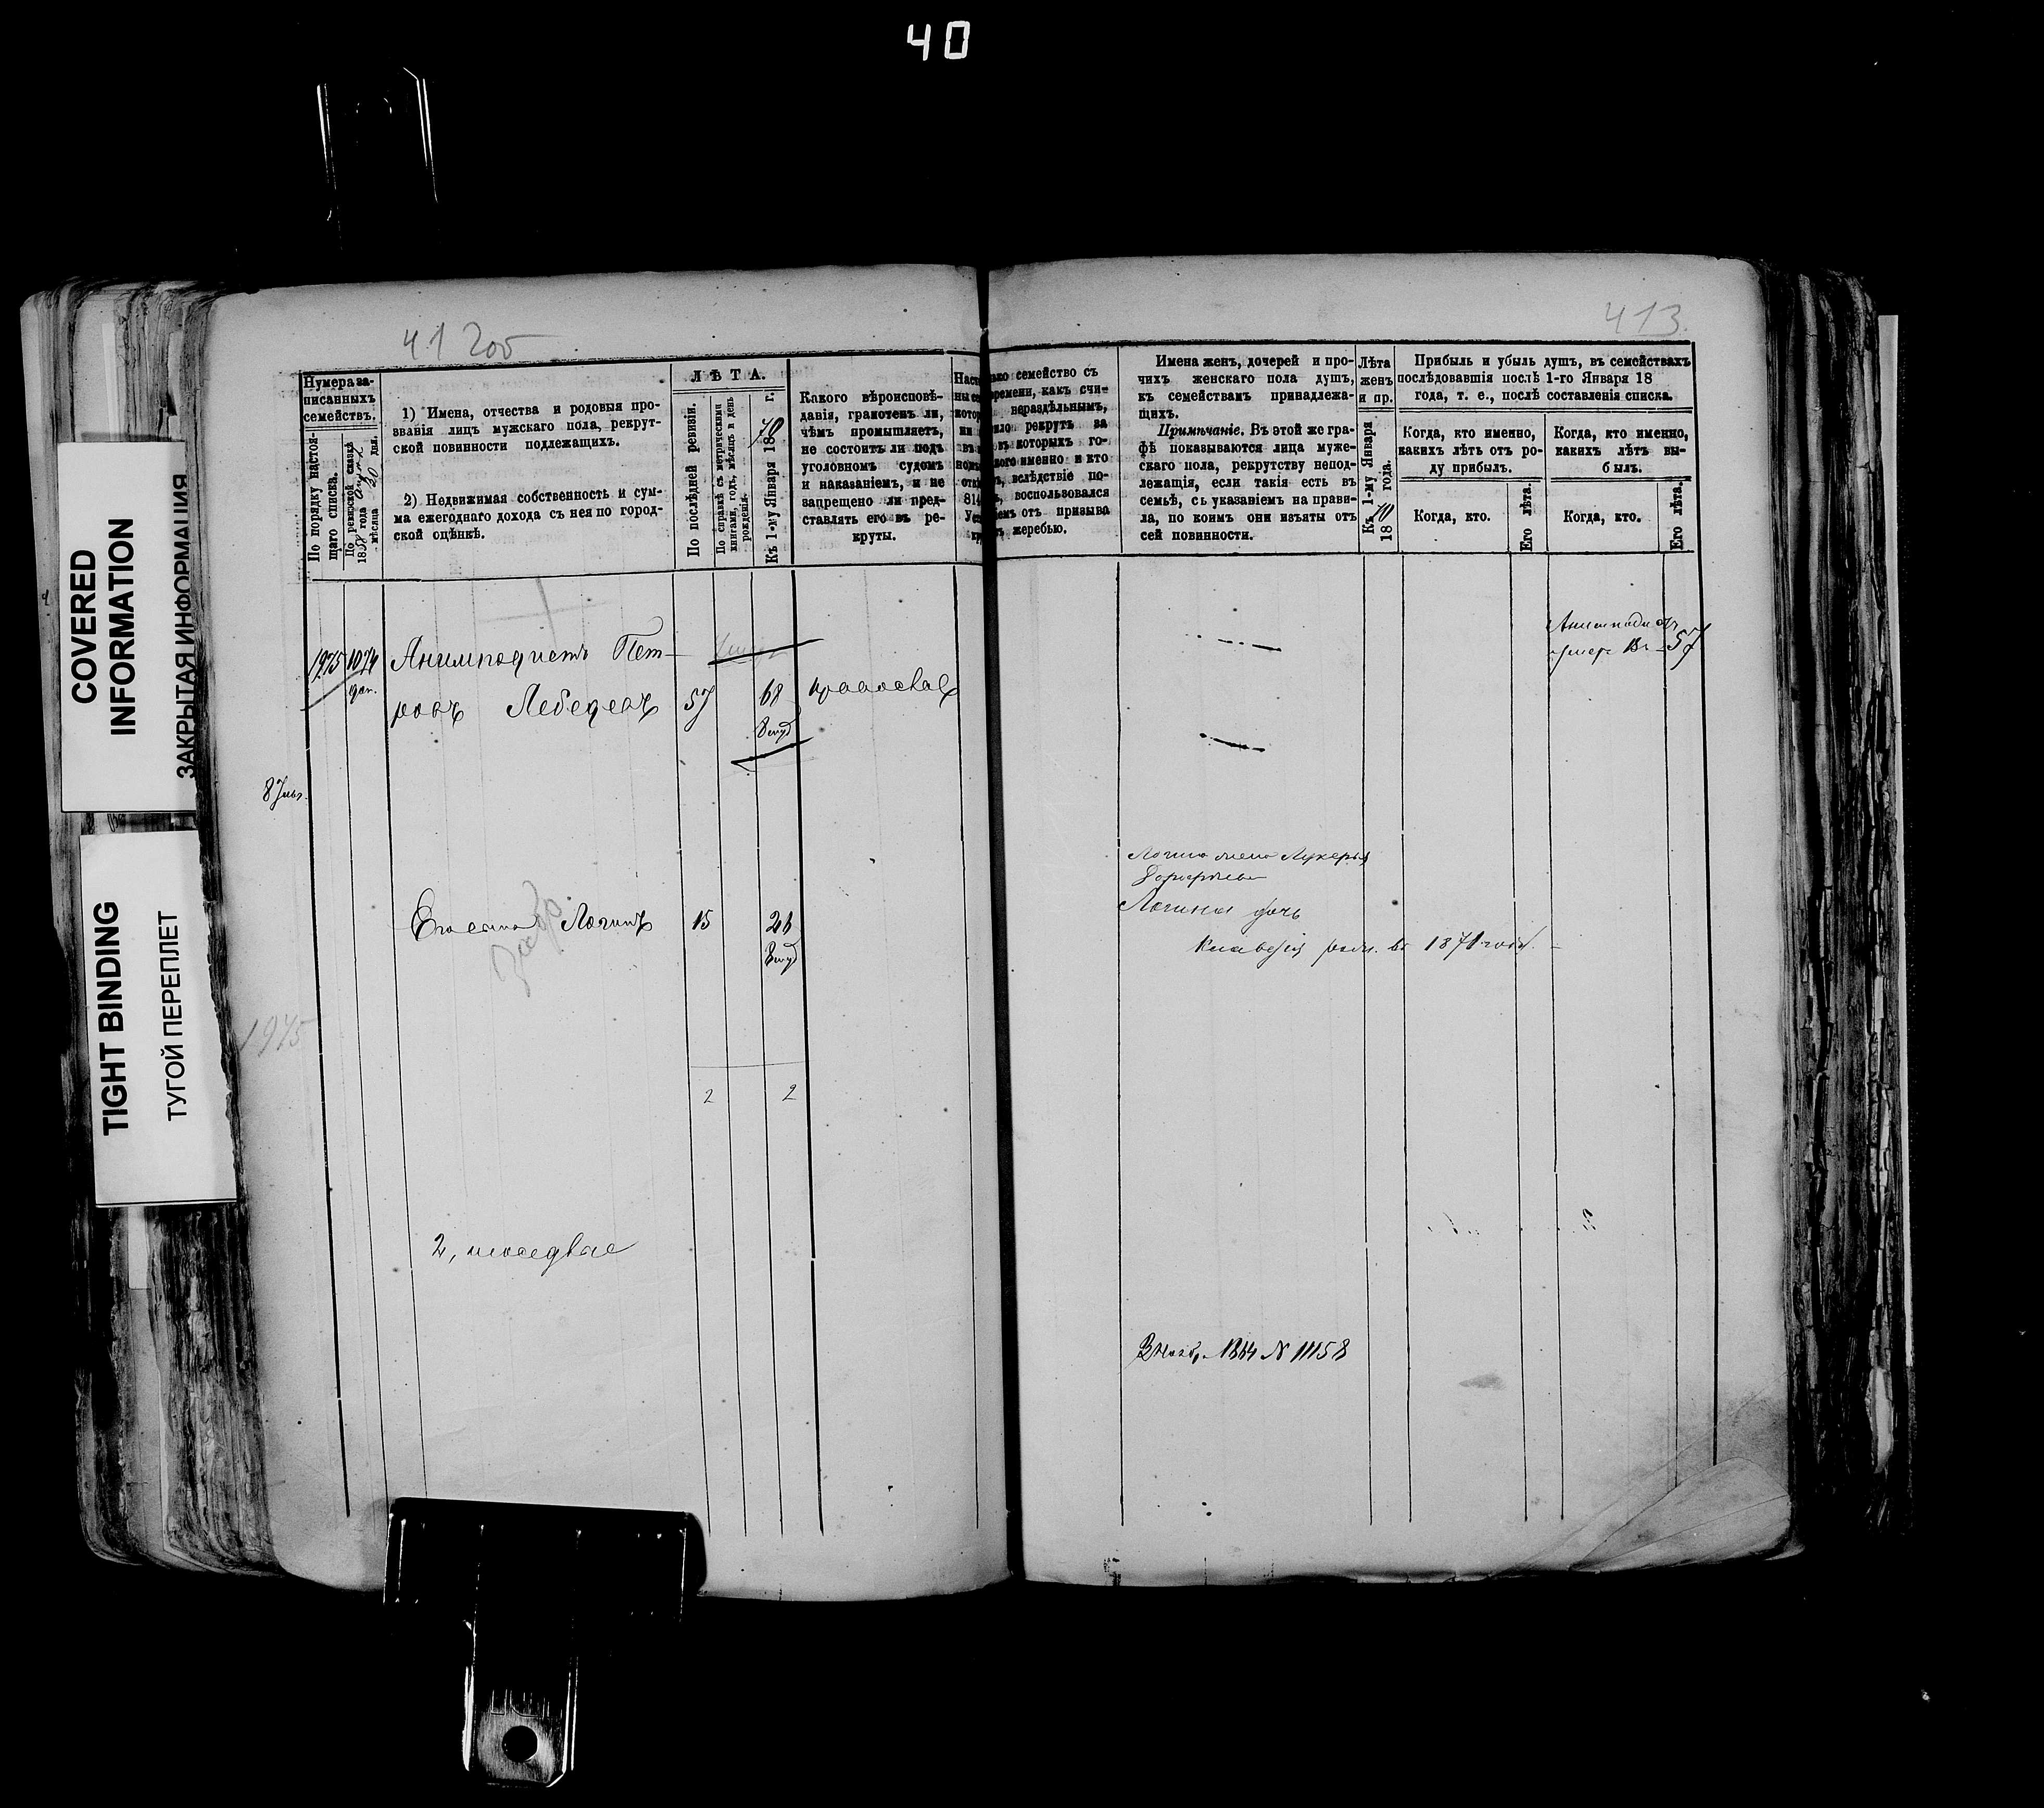 40
COVERED
INFORMATION
ЗАКРЫТАЯ ИНФОРМАЦИЯ
TIGHT BINDING
ТУГОЙ ПЕРЕПЛЕТ
41 2об
413.
Нумера за-
писанныхъ
семействъ.
По порядку настоя-
щаго списка.
По ревизской сказкѣ
1858 года
мѣсяца 20 дня.
1) Имена, отчества и родовыя про-
званія лицъ мужскаго пола, рекрут-
ской повинности подлежащихъ.
2) Недвижимая собственность и сум-
ма ежегоднаго дохода съ нея по город-
ской оцѣнкѣ.
ЛѢТА.
По послѣдней ревизіи.
По справкѣ съ метрическими
книгами, годъ, мѣсяцъ и день
рожденія.
Къ 1-му Января 1870 г.
Какого вѣроисповѣ-
данія, грамотенъ ли,
чѣмъ промышляетъ,
не состоитъ ли подъ
уголовномъ судомъ
и наказаніемъ, и не
запрещено ли пред-
ставлять его въ ре-
круты.
семейство съ
какъ счи-
нераздѣльнымъ,
рекрутъ за
въ которыхъ го-
именно и кто
вслѣдствіе по-
воспользовался
отъ призыва
жеребью.
Имена женъ, дочерей и про-
чихъ женскаго пола душъ,
къ семействамъ принадлежа-
щихъ.
Примѣчаніе. Въ этой же гра-
фѣ показываются лица муже-
скаго пола, рекрутству непод-
лежащія, если такія есть въ
семьѣ, съ указаніемъ на прави-
ла, по коимъ они изъяты отъ
сей повинности.
Лѣта
женъ
и пр.
Къ 1-му Января
1870 года.
Прибыль и убыль душъ, въ семействахъ
послѣдовавшія послѣ 1-го Января 18
года, т. е., послѣ составленія списка.
Когда, кто именно,
какихъ лѣтъ отъ ро-
ду прибылъ.
Когда, кто именно,
какихъ лѣтъ вы-
былъ.
Когда, кто.
Его лѣта.
Когда, кто.
Его лѣта.
1975 1074 Анимподистъ Пет-
ровъ Лебедевъ 57 68
умер 57
Его сынъ Логинъ 15 26
Логина жена Лукерья
Логина дочь
Клавдія родил. въ 1871 году.
1975
2 2
1864 N 11158